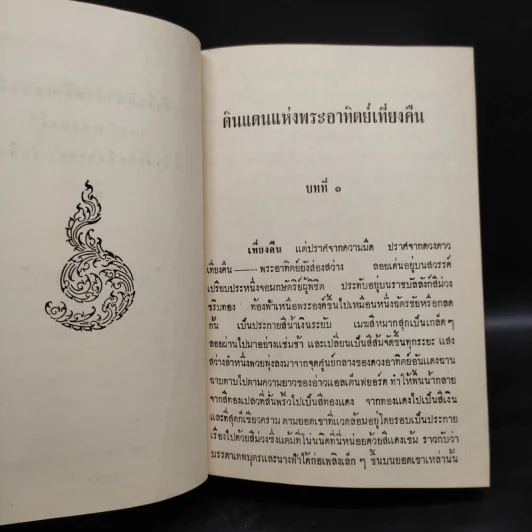 ดินแดนแห่งพระอาทิตย์เที่ยงคืน
บทที่ ๑
เที่ยงคืน แต่ปราศจากความมืด ปราศจากดวงดาว
เที่ยงคืน——พระอาทิตย์ยังส่องสว่าง ลอยเด่นอยู่บนสวรรค์
เปรียบประหนึ่งจอมกษัตริย์ผู้พิชิต ประทับอยู่บนราชบัลลังก์สีม่วง
ขริบทอง ท้องฟ้าเหนือพระองค์ขึ้นไปเหมือนหนึ่งฉัตรชัยหรือกลด
กั้น เป็นประกายสีน้ำเงินระยับ เมฆสีหมากสุกเป็นเกล็ดๆ
ลอยผ่านไปมาอย่างแช่มช้า และเปลี่ยนเป็นสีส้มจัดขึ้นทุกระยะ แสง
สว่างลำหนึ่งพวยพุ่งลงมาจากจุดศูนย์กลางของดวงอาทิตย์อันแดงฉาน
ฉาบทาบไปตามความยาวของอ่าวแอลเต็นฟยอร์ด ทำให้พื้นน้ำกลาย
จากสีทองเปลวที่สั่นพริ้วไปเป็นสีทองแดง จากทองแดงไปเป็นสีเงิน
และที่สุดก็เขียวคราม ตามยอดเขาที่แวดล้อมอยู่โดยรอบเป็นประกาย
เรืองไปด้วยสีม่วงซึ่งแต้มที่โน่นนิดที่นี่หน่อยด้วยสีแดงเข้ม ราวกับว่า
บรรดาเทพบุตรและนางฟ้าได้ก่อเพลิงเล็ก ๆ ขึ้นบนยอดเขาเหล่านั้น